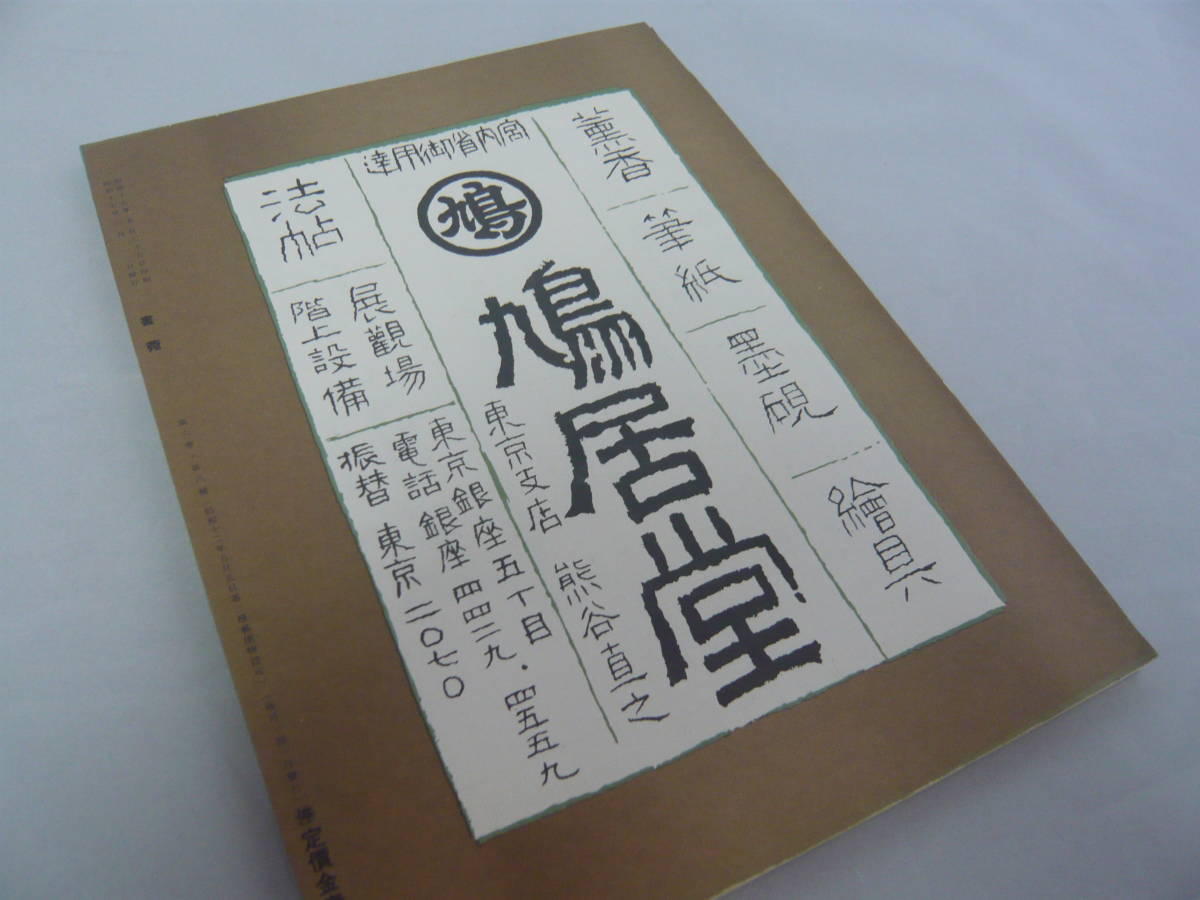 薰香
筆紙
墨硯
繪具
宮内省御用達
鳩
鳩居堂
東京支店
熊谷直之
法帖
展觀場
階上設備
東京銀座五丁目
電話銀座四四二九・四五五九
振替東京二〇七〇
書菀
定價金